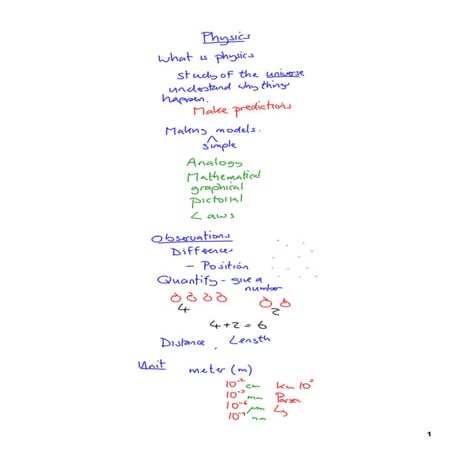 Physics
What is physics
study of the universe
understand why things
happen.
Make predictions
Making models.
simple
Analogy
Mathematical
graphical
pictorial
Laws
Observations
Difference
- Position
Quantify - give a
number
4 2
4 + 2 = 6
Distance , Length
Unit meter (m)
10⁻² cm km 10³
10⁻³ mm Parsec
10⁻⁶ μm Ly
10⁻⁹ nm
1